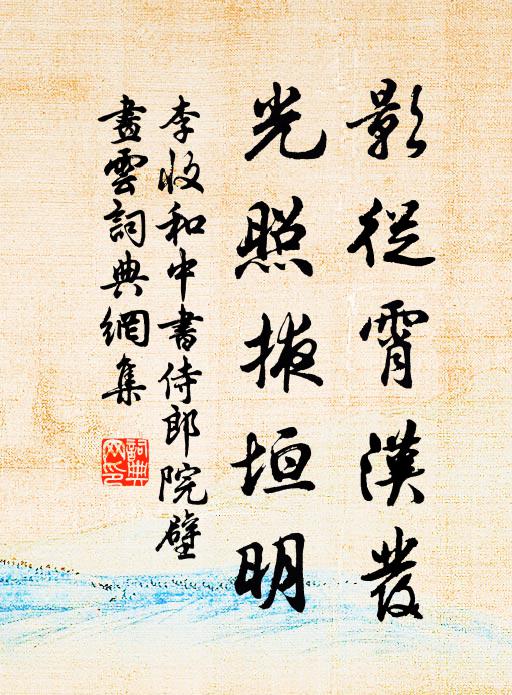 影從霄漢發
光照掖垣明
李收和中書侍郎院壁
畫雲詞典網集
詞典網印